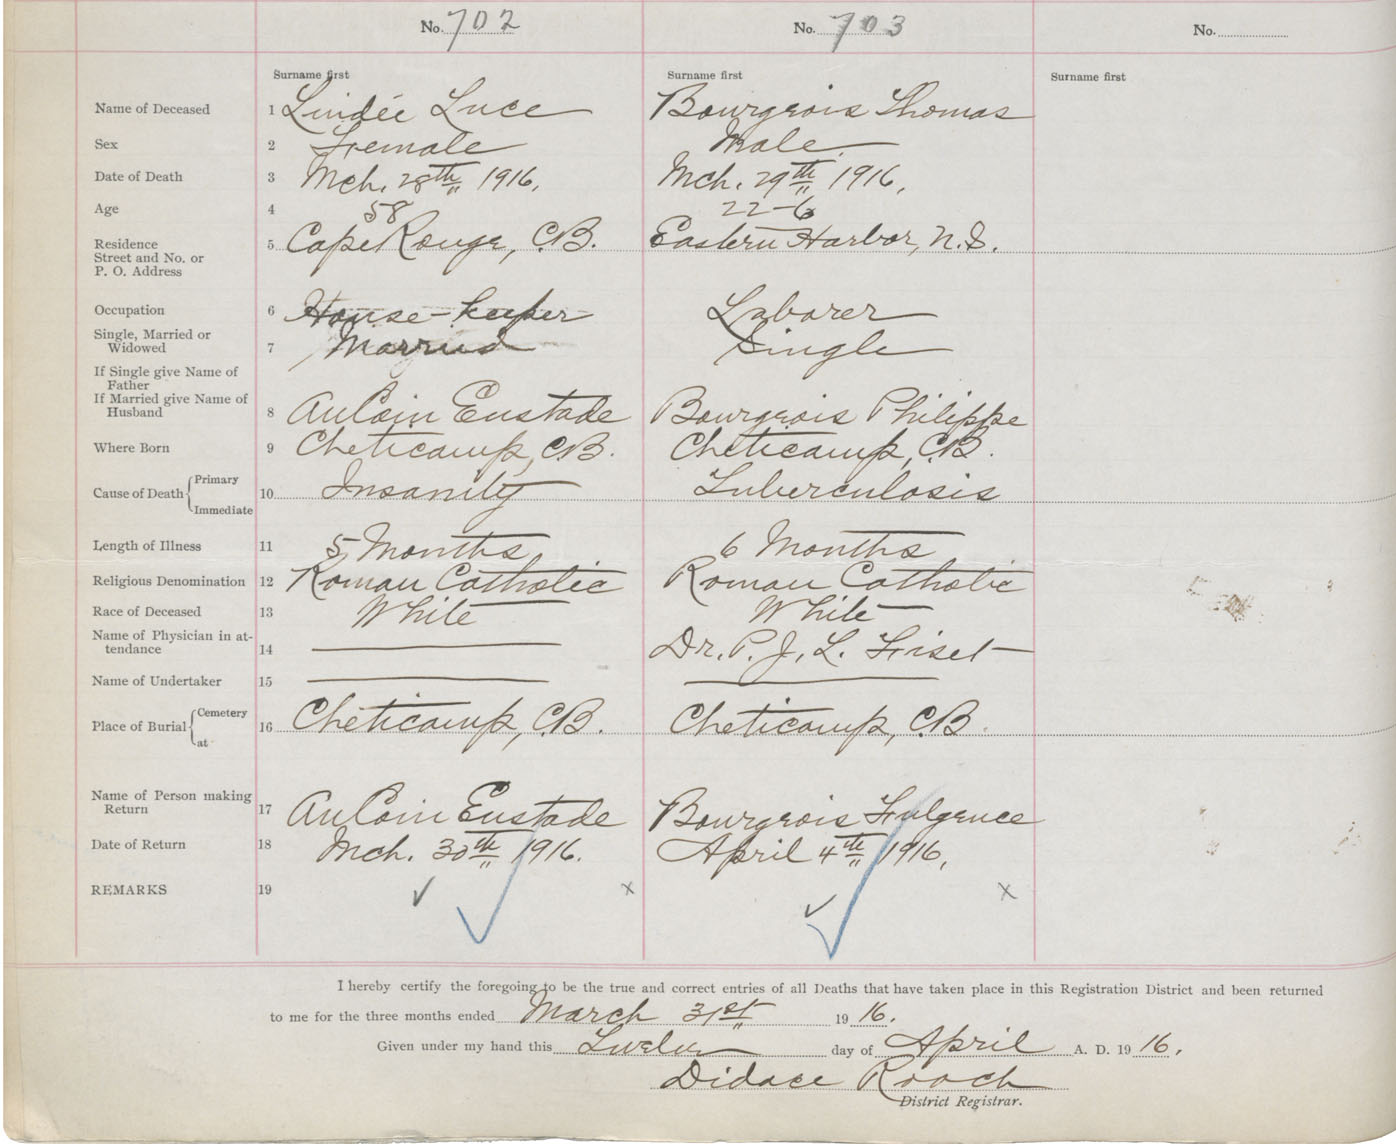 No. 702 No. 703 No.
Surname first Surname first Surname first
Name of Deceased 1 Lindéé Luce Bourgeois Thomas
Sex 2 Female Male
Date of Death 3 Mch. 28th 1916. Mch. 29th 1916.
Age 4 58 22-6
Residence
Street and No. or
P. O. Address 5 Cape Rouge, C.B. Eastern Harbor, N.S.
Occupation 6 House-keeper Laborer
Single, Married or
Widowed 7 Married Single
If Single give Name of
Father
If Married give Name of
Husband 8 AuCoin Eustade Bourgeois Philippe
Where Born 9 Cheticamp, C.B. Cheticamp, C.B.
Cause of Death { Primary
Immediate 10 Insanity Tuberculosis
Length of Illness 11 5 Months 6 Months
Religious Denomination 12 Roman Catholic Roman Catholic
Race of Deceased 13 White White
Name of Physician in at-
tendance 14 Dr. P. J. L. Fiset
Name of Undertaker 15
Place of Burial { Cemetery
at 16 Cheticamp, C.B. Cheticamp, C.B.
Name of Person making
Return 17 AuCoin Eustade Bourgeois Fulgence
Date of Return 18 Mch. 30th 1916. April 4th 1916.
REMARKS 19
I hereby certify the foregoing to be the true and correct entries of all Deaths that have taken place in this Registration District and been returned
to me for the three months ended March 31st 19 16.
Given under my hand this Twelve day of April A. D. 19 16.
Didace Roach
District Registrar.